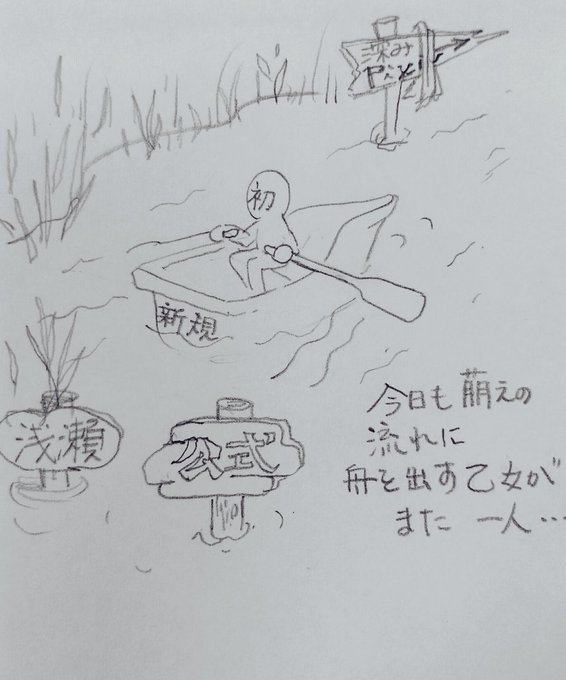 深み
初
新規
浅瀬
公式
今日も萌えの
流れに
舟を出す乙女が
また一人…